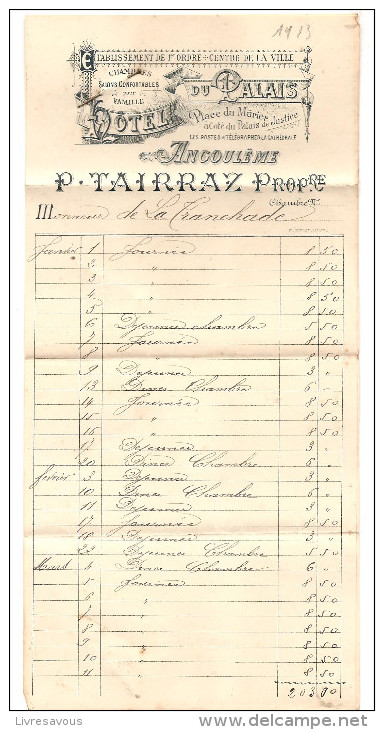 1913
ETABLISSEMENT DE 1er ORDRE - CENTRE DE LA VILLE
CHAMBRES
SALONS CONFORTABLES
pour
FAMILLE
HOTEL DU PALAIS
Place du Mûrier
à Côté du Palais de Justice
LES POSTES & TÉLÉGRAPHES, LA CATHÉDRALE
ANGOULÊME
P. TAIRRAZ PROP.RE
Chambre N.
Monsieur de La Tranchade
Janvier 1 Journée 8 50
2 " 8 50
3 " 8 50
4 " 8 50
5 " 8 50
6 Dejeuner chambre 5 50
7 Journée 8 50
8 " 8 50
9 Dejeuner 3 "
13 Diner Chambre 6 "
14 Journée 8 50
15 " 8 50
16 " 8 50
17 Dejeuner 3 "
20 Diner Chambre 6 "
février 3 Dejeuner 3 "
10 Diner Chambre 6 "
11 Dejeuner 3 "
17 Journée 8 50
18 Dejeuner 3 "
22 Dejeuner Chambre 5 50
Mars 4 Diner Chambre 6 "
5 Journée 8 50
6 " 8 50
7 " 8 50
8 " 8 50
9 " 8 50
10 " 8 50
11 " 8 50
Livresavous
www.delcampe.net